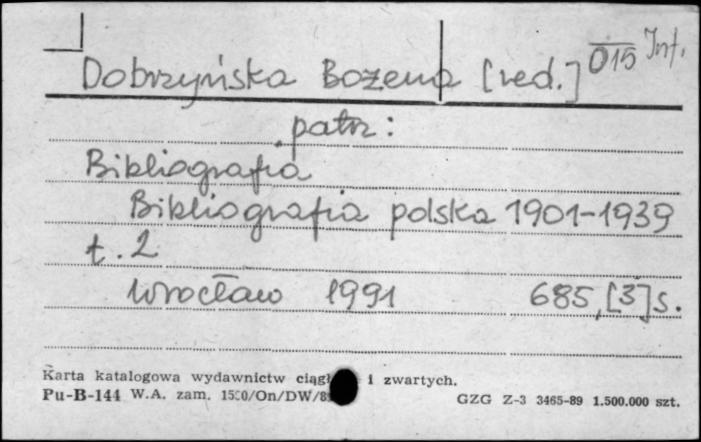 015 Inf.
Dobrzyńska Bożena [red.]
patrz:
Bibliografia
Bibliografia polska 1901-1939
t. 2
Wrocław 1991 685,[3]s.
Karta katalogowa wydawnictw i zwartych.
Pu-B-144 W.A. zam. GZG Z-3 3465-89 1.500.000 szt.